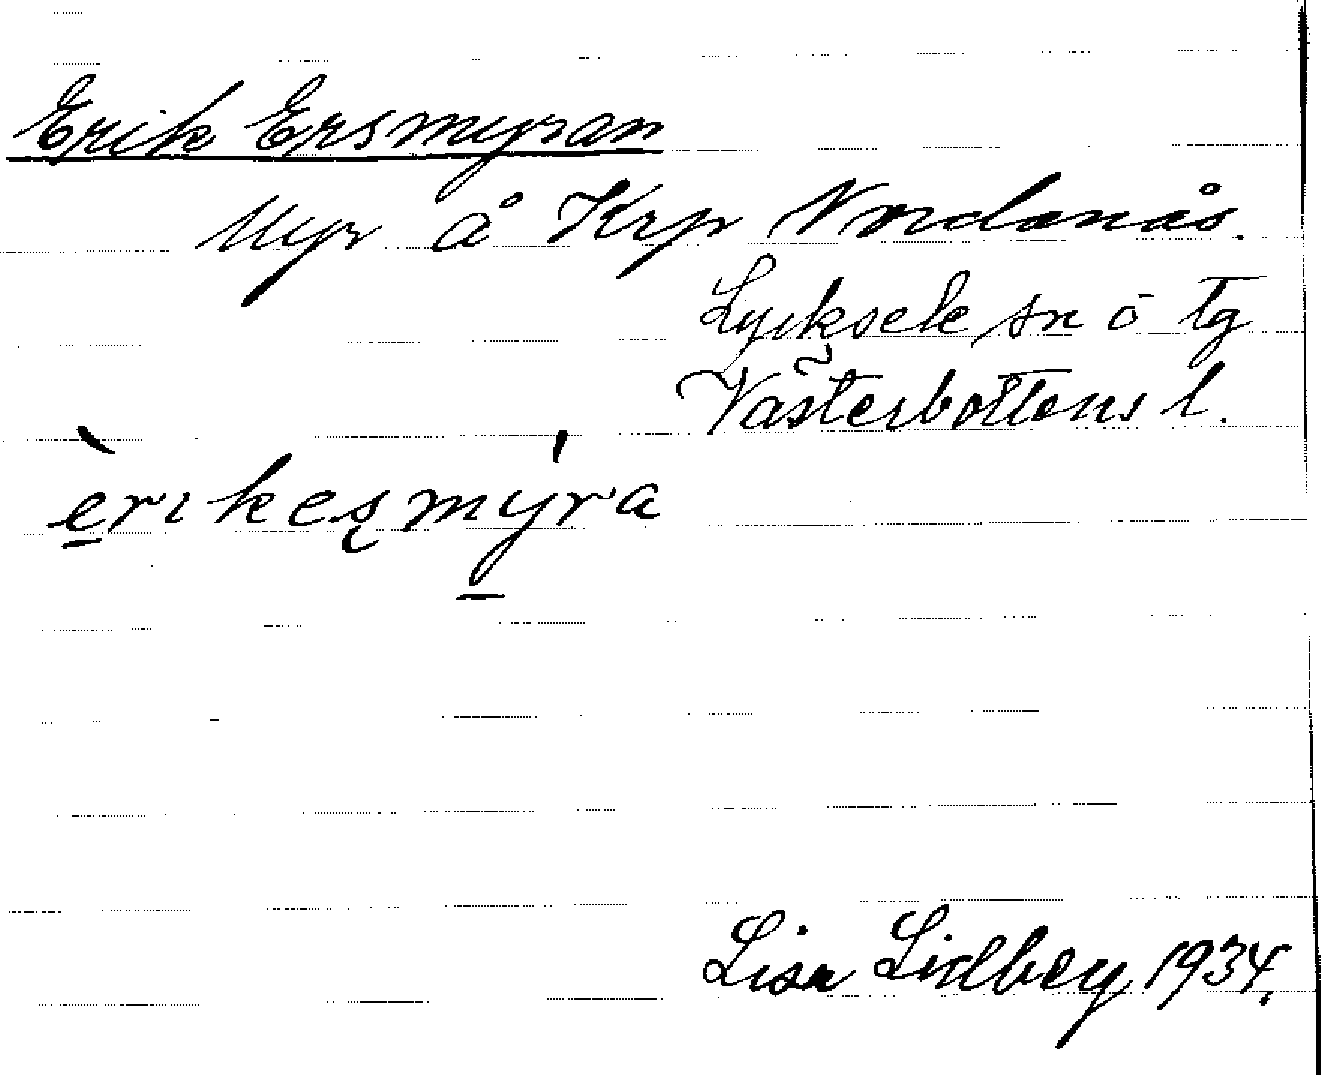 Erik Ersmyran
Myr å Krp Nordanås.
Lycksele sn o tg
Västerbottens l.
èrıkesmýra
Lisa Lidberg 1934.